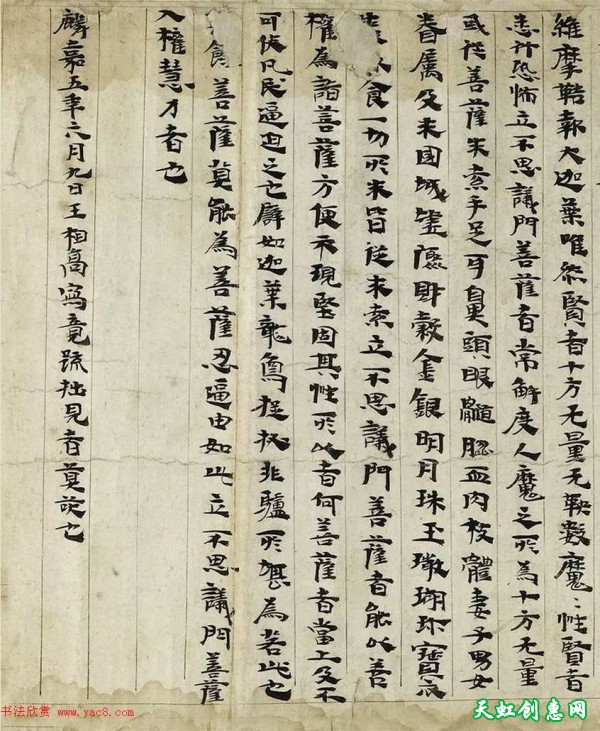 維摩鞊報大迦葉唯然賢者十方无量无鞅數魔〻性賢者
悉行恐怖立不思議門菩薩者常解度人魔之所為十方无量
或從菩薩求索手足耳鼻頭眼髓腦血肉枝體妻子男女
眷屬及求國城墟財穀金銀明月珠玉瑚珎寶衣
食一切所求皆從求索立不思議門菩薩者能以善
權為諸菩薩方便示現堅固其性所以者何菩薩者當上及不
可使凡民逼迫之也譬如迦葉龍象捉扠非驢所堪為若此也
餘菩薩莫能為菩薩忍逼由如此立不思議門菩薩
入權慧力者也
麟嘉五年六月九日王相高寫竟疏拙見者莫笑也
书法欣赏 www.yac8.com
天虹创惠网